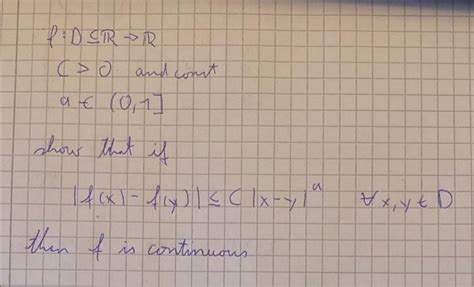 f : D ⊆ ℝ → ℝ
C > 0 and const
a ∈ (0,1]
show that if
|f(x) - f(y)| ≤ C |x-y|^a ∀x,y ∈ D
then f is continuous